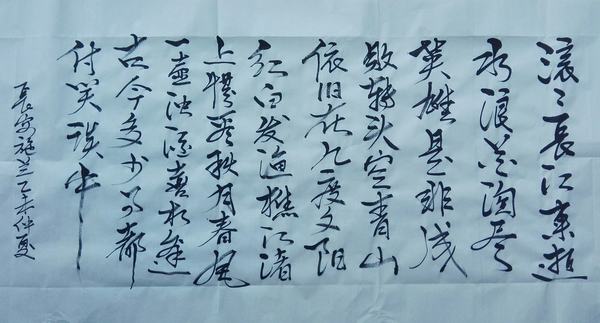 滚〻長江東逝
水浪花淘尽
英雄是非成
敗轉头空青山
依旧在几度夕阳
红白发渔樵江渚
上惯看秋月春風
一壶浊酒喜相逢
古今多少事都
付笑谈中
長安施兰乙未仲夏